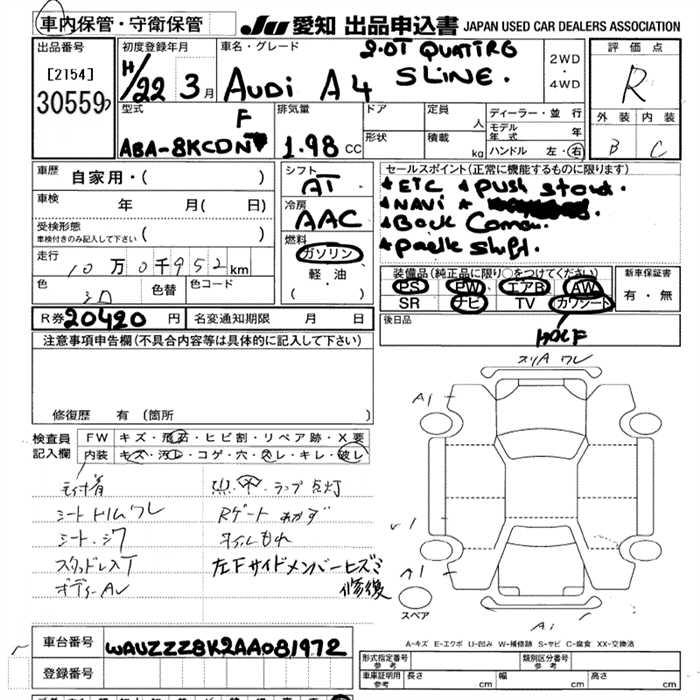 車内保管・守衛保管
JU 愛知 出品申込書 JAPAN USED CAR DEALERS ASSOCIATION
出品番号
[2154]
30559
初度登録年月
H/22 3月
車名・グレード
2.0T QUATTRO
AUDI A4 SLINE.
2WD
・
4WD
評価点
R
外装 内装
B C
型式
F
ABA-8KCDN
排気量
1.98 CC
ドア
形状
定員
人
積載
kg
ディーラー・並行
モデル年式 年
ハンドル 左・右
車歴
自家用・( )
車検 年 月( 日)
受検形態
車検付きのみ記入して下さい ( )
走行
10万0千952km
色
色替
色コード
シフト
AT
冷房
AAC
燃料
ガソリン
軽・油
( )
セールスポイント(正常に機能するものに限ります)
★ETC ★Push start.
★NAVi ★
★Back Camera.
★Paddle Shift.
装備品(純正品に限り○をつけてください)
PS PW エアB AW
SR ナビ TV カワシート
HALF
新車保証書
有・無
後日品
R券 20420 円
名変通知期限 月 日
注意事項申告欄(不具合内容等は具体的に記入して下さい)
修復歴 有(箇所 )
検査員記入欄
FW キズ・飛石・ヒビ割・リペア跡・X要
内装 キズ・汚レ・コゲ・穴・スレ・キレ・破レ
シートトリムワレ
シート・シワ
ランプ点灯
Rゲート
オイルもれ
左Fサイドメンバーヒズミ
修復
スリA ワレ
A1
A1
スペア
A-キズ E-エクボ U-凹み W-補修跡 S-サビ C-腐食 XX-交換済
車台番号
WAUZZZ8K2AA081972
登録番号
形式指定番号
参考
類別区分番号
参考
車庫証明用
参考
長さ cm
幅 cm
高さ cm